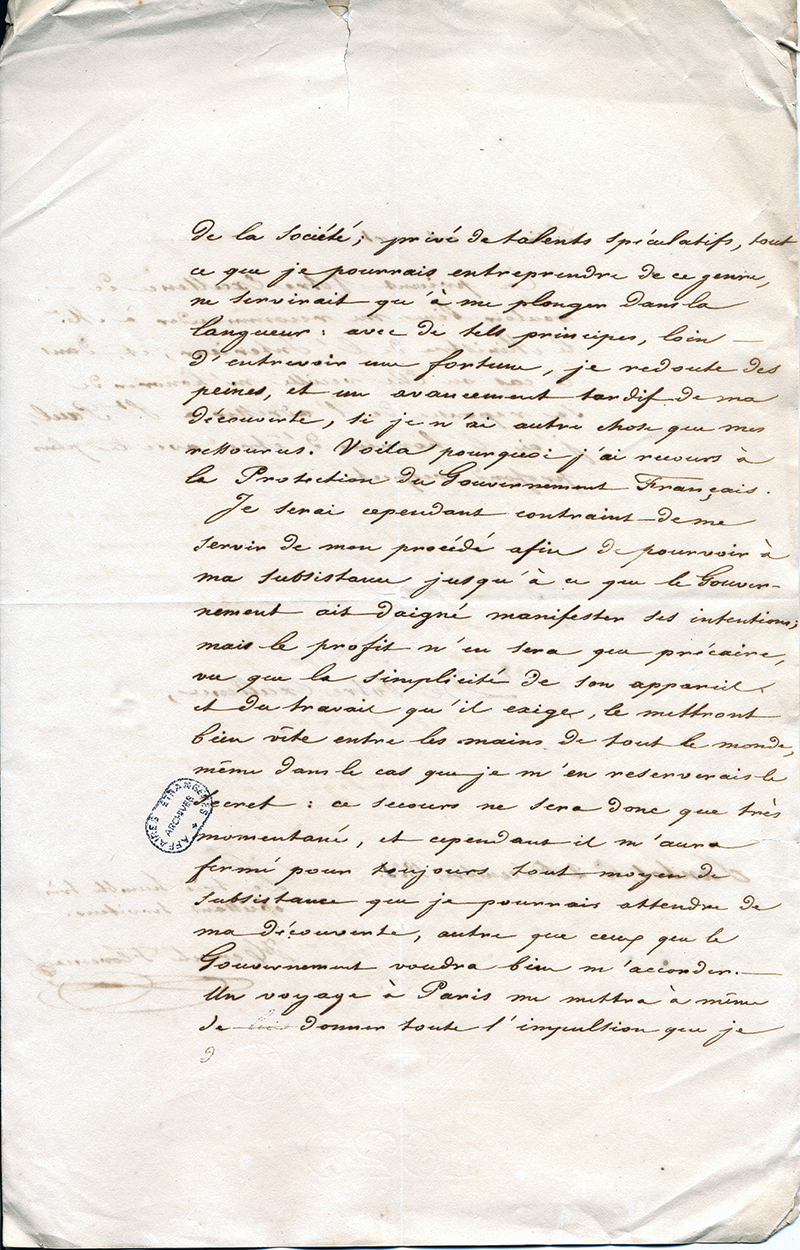 de la société; privé de talents spéculatifs, tout
ce que je pourrais entreprendre de ce genre,
ne servirait qu'à me plonger dans la
langueur: avec de tels principes, loin —
d'entrevoir une fortune, je redoute des
peines, et un avancement tardif de ma
découverte, si je n'ai autre chose que mes
ressources. Voila pourquoi j'ai recours à
la Protection du Gouvernement Français.
Je serai cependant contraint de me
servir de mon procédé afin de pourvoir à
ma subsistance jusqu'à ce que le Gouver-
nement ait daigné manifester ses intentions;
mais le profit n'en sera que précaire,
vu que la simplicité de son appareil
et du travail qu'il exige, le mettront
bien vîte entre les mains de tout le monde,
même dans le cas que je m'en reserverais le
secret: ce secours ne sera donc que très
momentané, et cependant il m'aura
fermé pour toujours tout moyen de
subsistance que je pourrais attendre de
ma découverte, autre que ceux que le
Gouvernement voudra bien m'accorder. —
Un voyage à Paris me mettra à même
de donner toute l'impulsion que je
AFFAIRES ETRANGERES
ARCHIVES